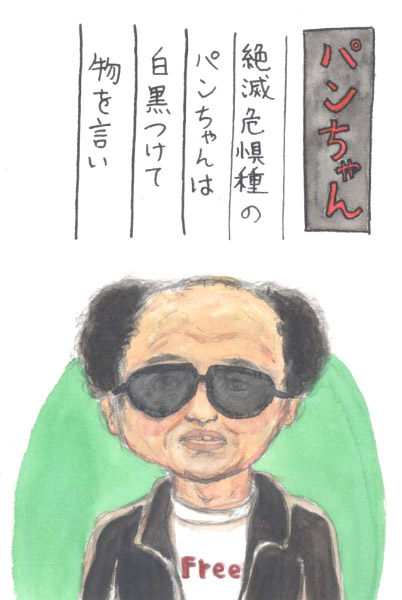 パンちゃん
絶滅危惧種の
パンちゃんは
白黒つけて
物を言い
Free